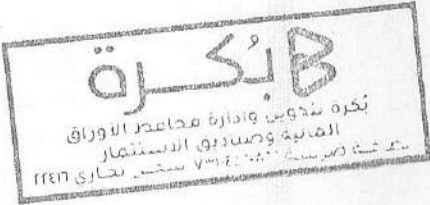 بُكرة
بُكرة لتكوين وإدارة محافظ الأوراق
المالية وصناديق الاستثمار
سجل تجاري ٢٢٤١٦